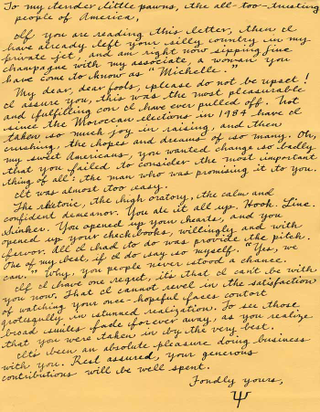 To my tender little pawns, the all-too-trusting
people of America,
If you are reading this letter, then I
have already left your silly country in my
private jet, and am right now sipping fine
champagne with my associate, a woman you
have come to know as "Michelle."
My dear, dear fools, please do not be upset!
I assure you, this was the most pleasurable
and fulfilling con I have ever pulled off. Not
since the Moroccan elections in 1984 have I
taken so much joy in raising, and then
crushing, the hopes and dreams of so many. Oh,
my sweet Americans, you wanted change so badly
that you failed to consider the most important
thing of all: the man who was promising it to you.
It was almost too easy.
The rhetoric, the high oratory, the calm and
confident demeanor. You ate it all up. Hook. Line.
Sinker. You opened up your hearts, and you
opened up your checkbooks, willingly and with
fervor. All I had to do was provide the pitch.
One of my best, if I do say so myself. "Yes, we
can." Why, you people never stood a chance.
If I have one regret, it's that I can't be with
you now. That I cannot revel in the satisfaction
of watching your once-hopeful faces contort
grotesquely in stunned realization. To see those
broad smiles fade forever away, as you realize
that you were taken in by the very best.
It's been an absolute pleasure doing business
with you. Rest assured, your generous
contributions will be well spent.
Fondly yours,
Ψ